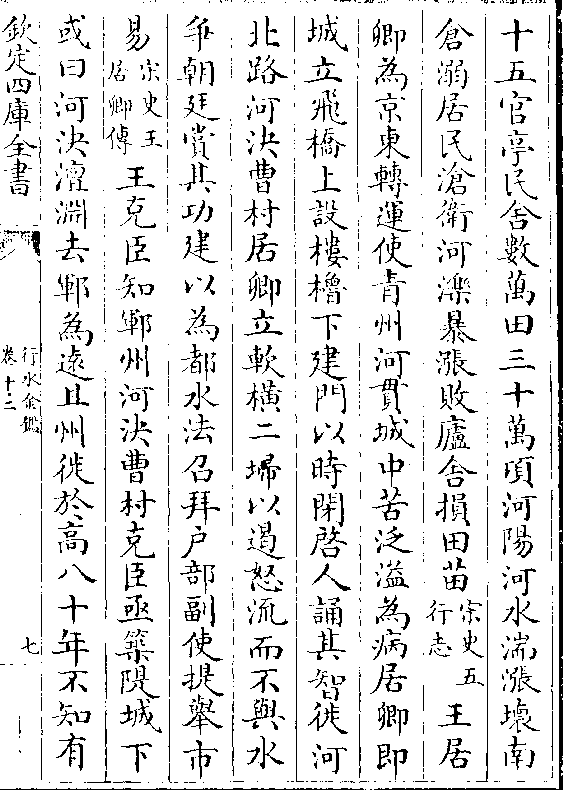 十五官亭民舍數萬田三十萬頃河陽河水湍漲壞南
倉溺居民滄衛河濼暴漲敗廬舍損田苗宋史五行志 王居
卿為京東轉運使青州河貫城中苦泛溢為病居卿即
城立飛橋上設樓櫓下建門以時閉啓人誦其智徙河
北路河決曹村居卿立軟橫二埽以遏怒流而不與水
争朝廷賞其功建以為都水法召拜户部副使提舉市
易宋史王居卿傳 王克臣知鄆州河決曹村克臣亟築隄城下
或曰河決澶淵去鄆為遠且州徙於高八十年不知有
欽定四庫全書
行水金鑑
卷十二
七